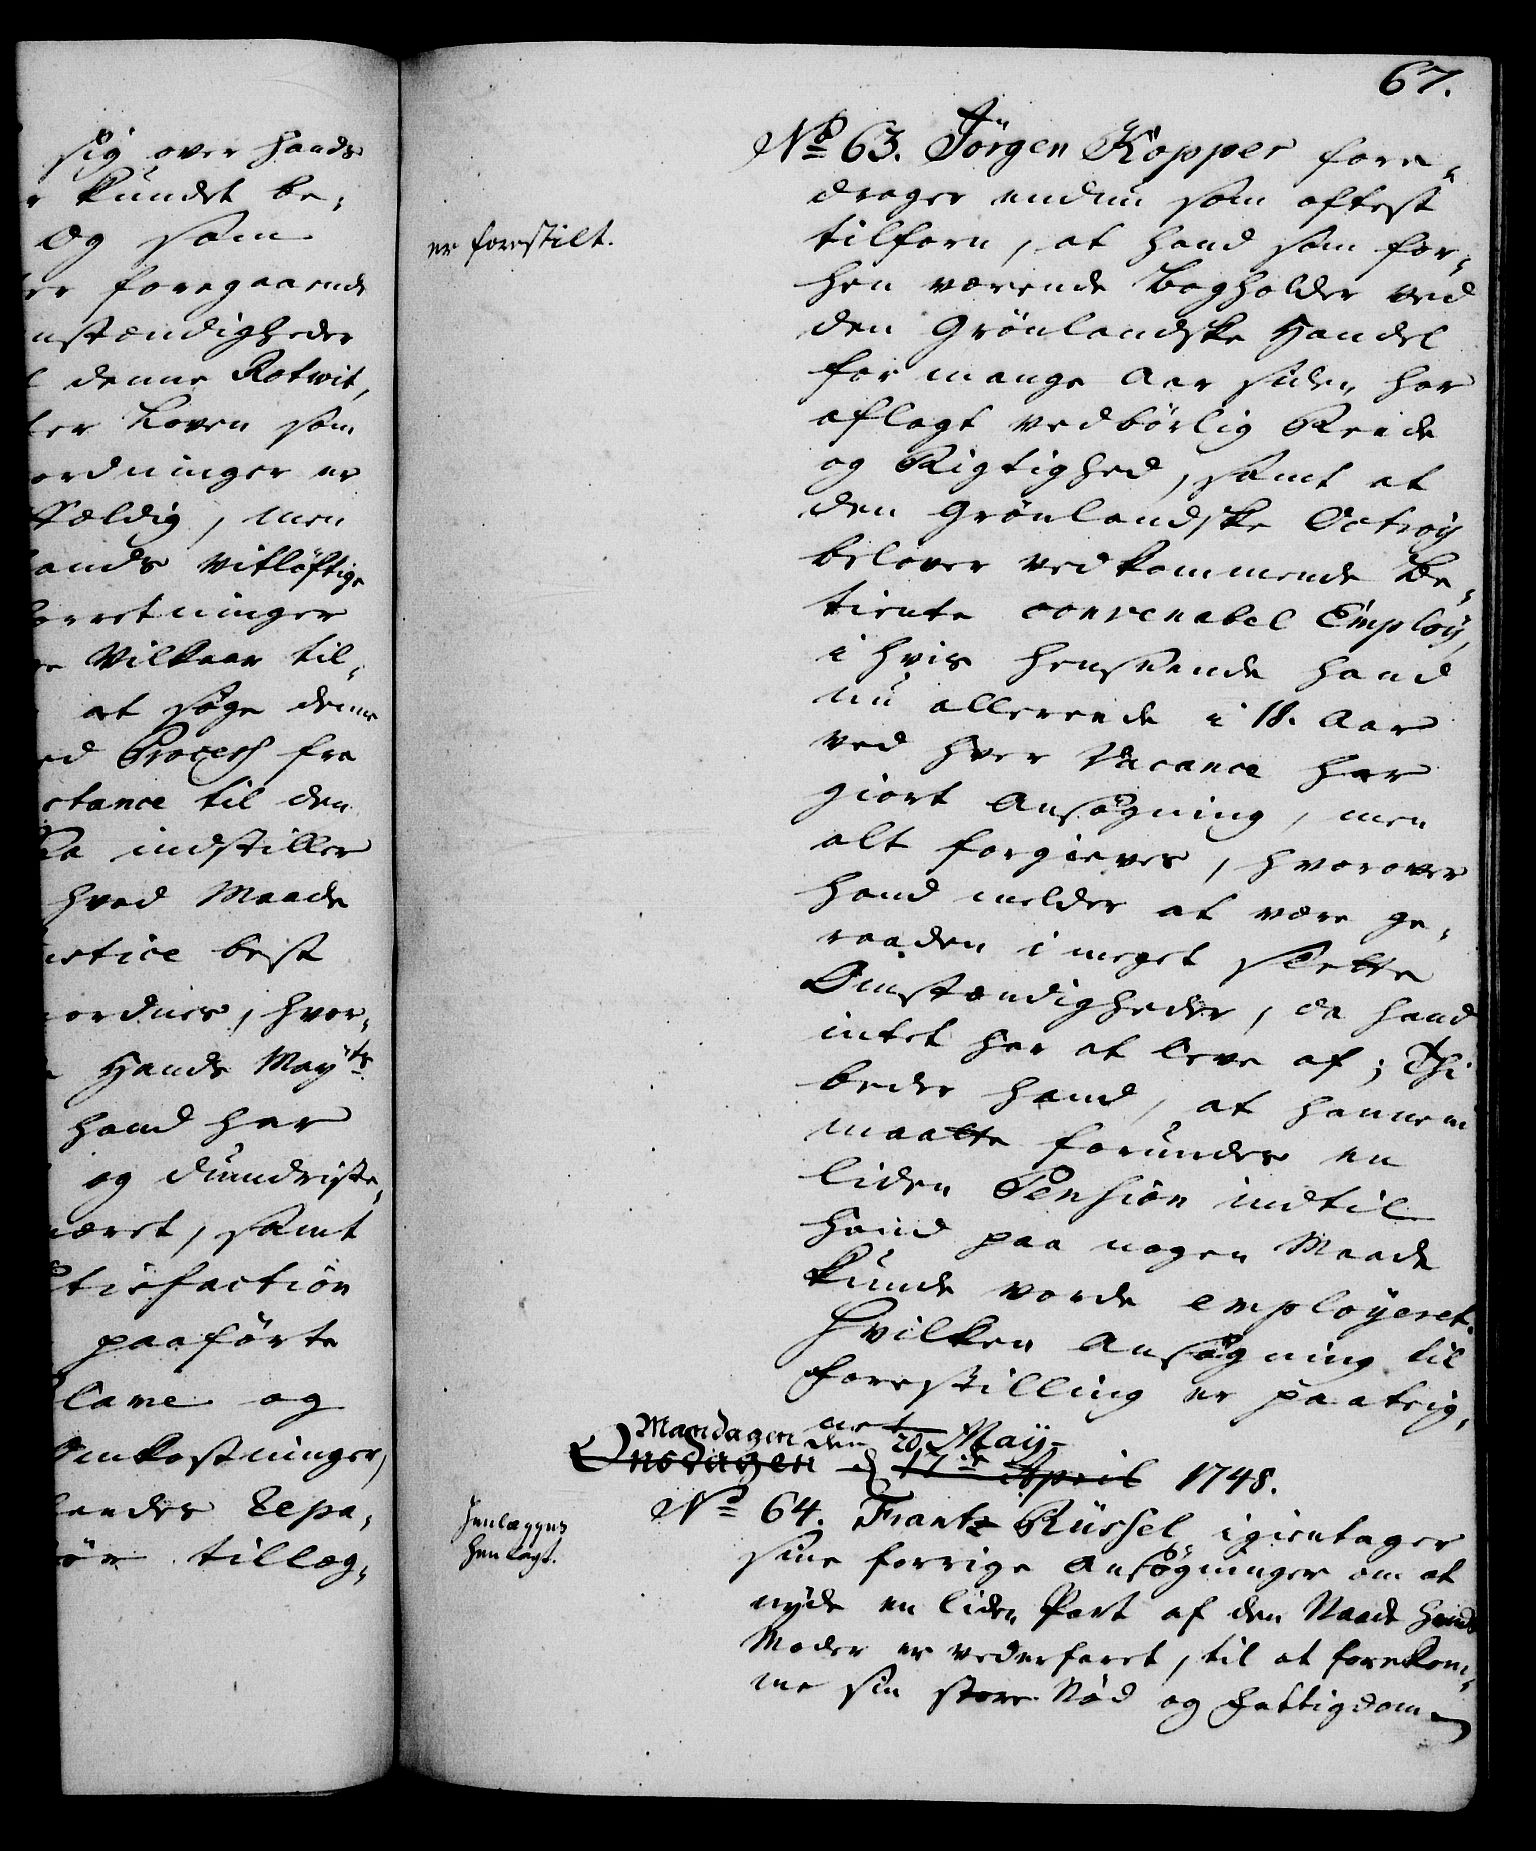 sig over hands
r kundet be,
og som
er foregaaende
nstændigheder
l denne Rotwit,
ter Loven som
ordninger er
fældig, men
ands vitløftige
orretninger
re Vilkaar til,
at søge denne
ed Process fra
stance til den
indstiller
hvad Maade
ustice best
ordnes, hvor,
Hands Mayts
hand har
og dumdriste,
været, samt
tisfaction
paaførte
lame og
Omkostninger,
landes Repa,
tillæg,
67.
No 63. Jörgen Kopper fore,
drager endnu som oftest
tilforn, at hand som for,
hen værende Bogholder ved
den Grönlandske Handel
for mange Aar siden har
aflagt vedbörlig Reede
og Rigtighed, samt at
den Grönlandske Octroy
belover vedkommende Be,
tiente convenabel Employ,
i hvis henseende hand
nu allerede i 18. Aar
ved hver Vacance har
giort Ansögning, men
alt forgieves, hvorover
hand melder at være ge,
raaden i meget slette
Omstændigheder, da hand
intet har at leve af; Thi
beder hand, at hannem
maatte forundes en
liden Pension indtil
hand paa nogen Maade
kunde vorde employeret.
Hvilken Ansögning til
forestilling er paateig,
net
er forestilt.
Mandagen den 20 May
Onsdagen d 17de April 1748.
No 64. Frantz Rüssel igientager
sine forrige Ansögninger om at
nyde en liden Part af den Naade hands
Moder er vederfaret, til at forekom,
me sin store Nöd og Fattigdom
Henlægges
Henlagt.